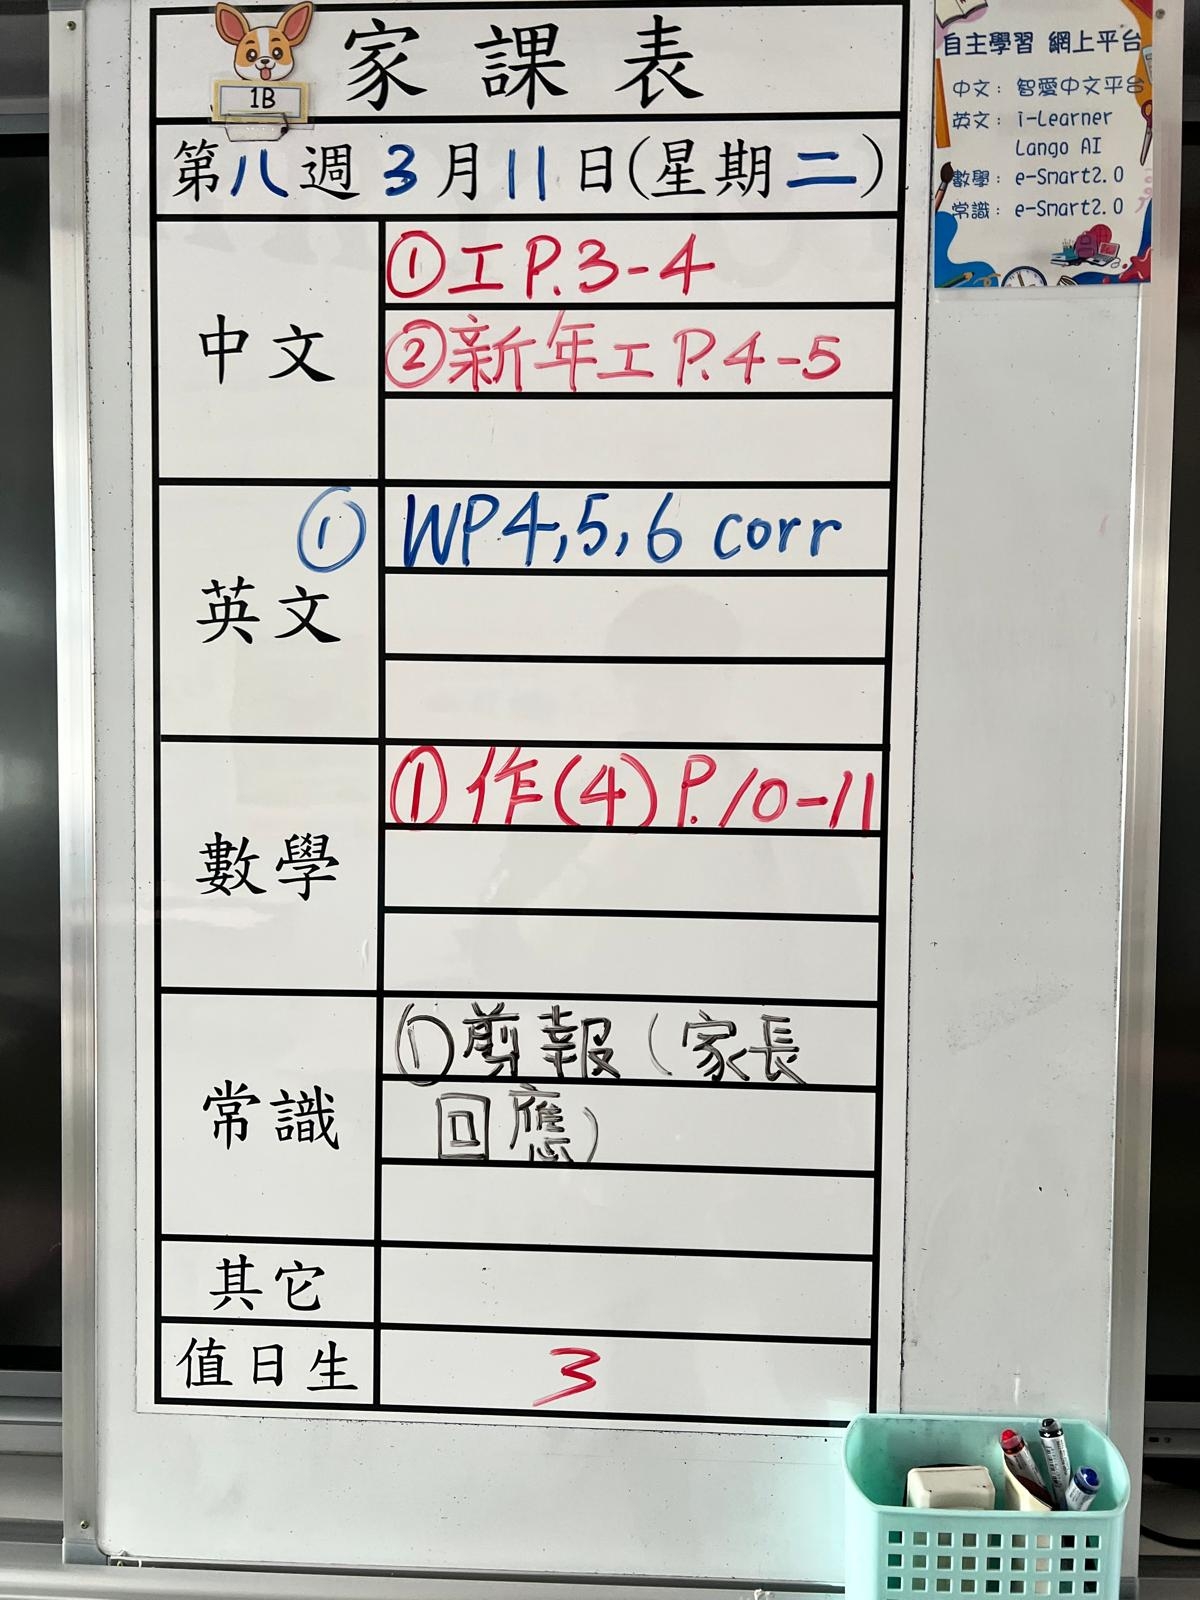 家課表
1B
第八週3月11日(星期二)
中文
①工P.3-4
②新年工P.4-5
英文
① WP4,5,6 corr
數學
①作(4)P.10-11
常識
①剪報(家長
回應)
其它
值日生
3
自主學習 網上平台
中文：智愛中文平台
英文：i-Learner
Lango AI
數學：e-Smart2.0
常識：e-Smart2.0